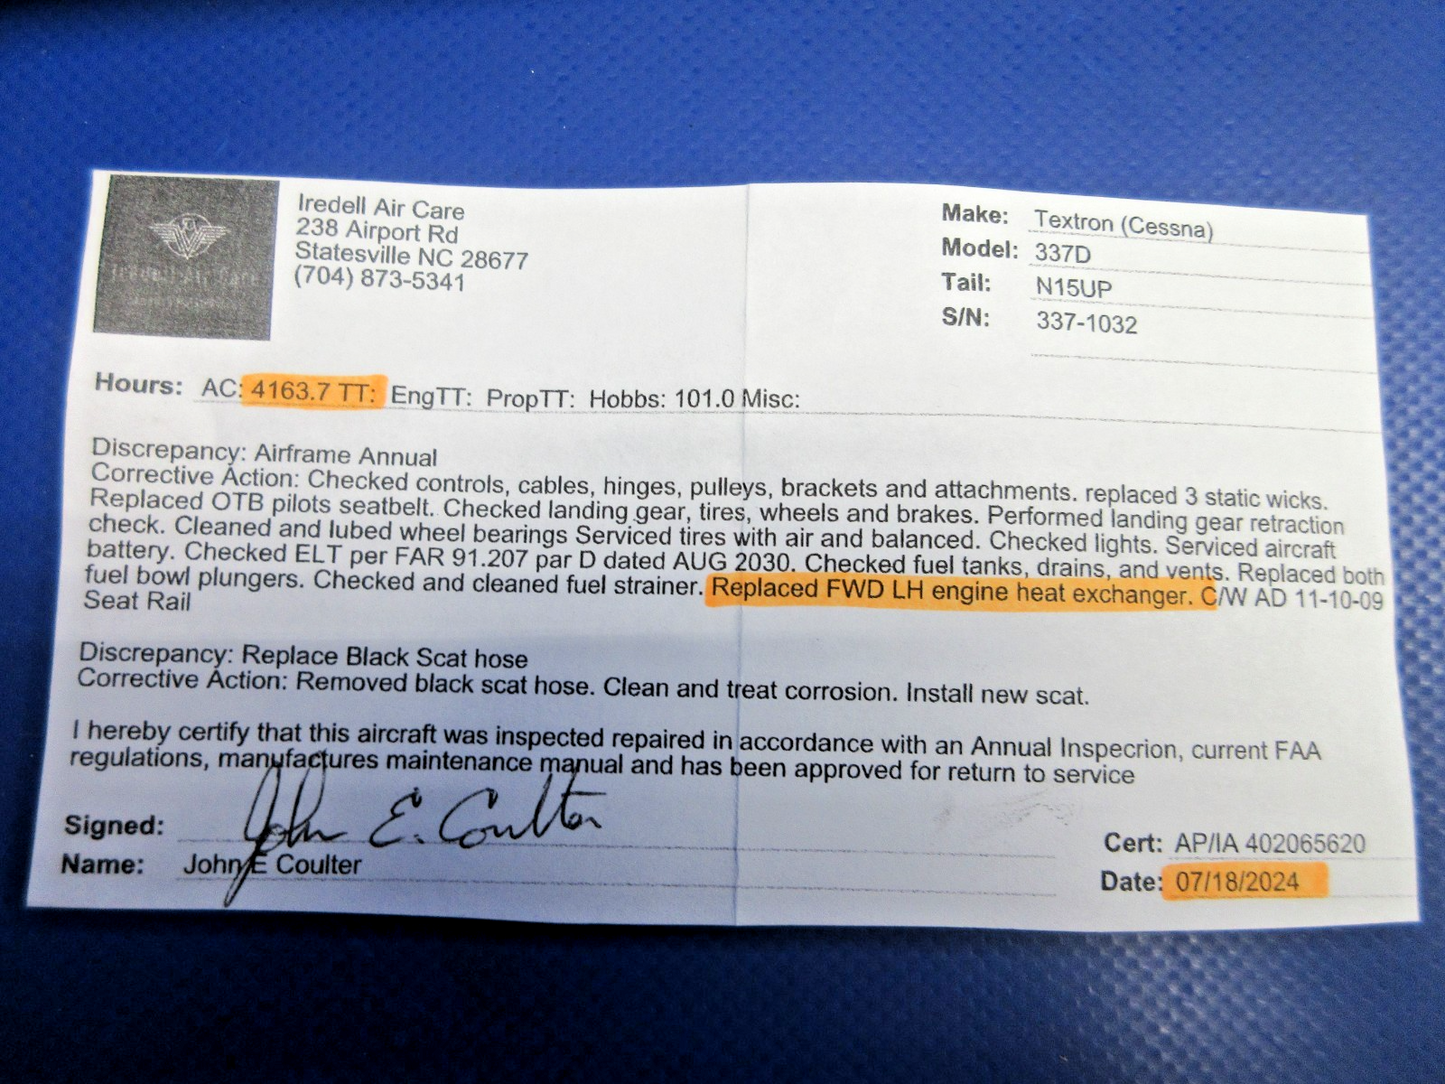 Iredell Air Care
238 Airport Rd
Statesville NC 28677
(704) 873-5341
Make: Textron (Cessna)
Model: 337D
Tail: N15UP
S/N: 337-1032
Iredell Air Care
Hours: AC: 4163.7 TT: EngTT: PropTT: Hobbs: 101.0 Misc:
Discrepancy: Airframe Annual
Corrective Action: Checked controls, cables, hinges, pulleys, brackets and attachments. replaced 3 static wicks.
Replaced OTB pilots seatbelt. Checked landing gear, tires, wheels and brakes. Performed landing gear retraction
check. Cleaned and lubed wheel bearings Serviced tires with air and balanced. Checked lights. Serviced aircraft
battery. Checked ELT per FAR 91.207 par D dated AUG 2030. Checked fuel tanks, drains, and vents. Replaced both
fuel bowl plungers. Checked and cleaned fuel strainer. Replaced FWD LH engine heat exchanger. C/W AD 11-10-09
Seat Rail
Discrepancy: Replace Black Scat hose
Corrective Action: Removed black scat hose. Clean and treat corrosion. Install new scat.
I hereby certify that this aircraft was inspected repaired in accordance with an Annual Inspecrion, current FAA
regulations, manufactures maintenance manual and has been approved for return to service
Signed: John E. Coulter
Name: John E Coulter
Cert: AP/IA 402065620
Date: 07/18/2024